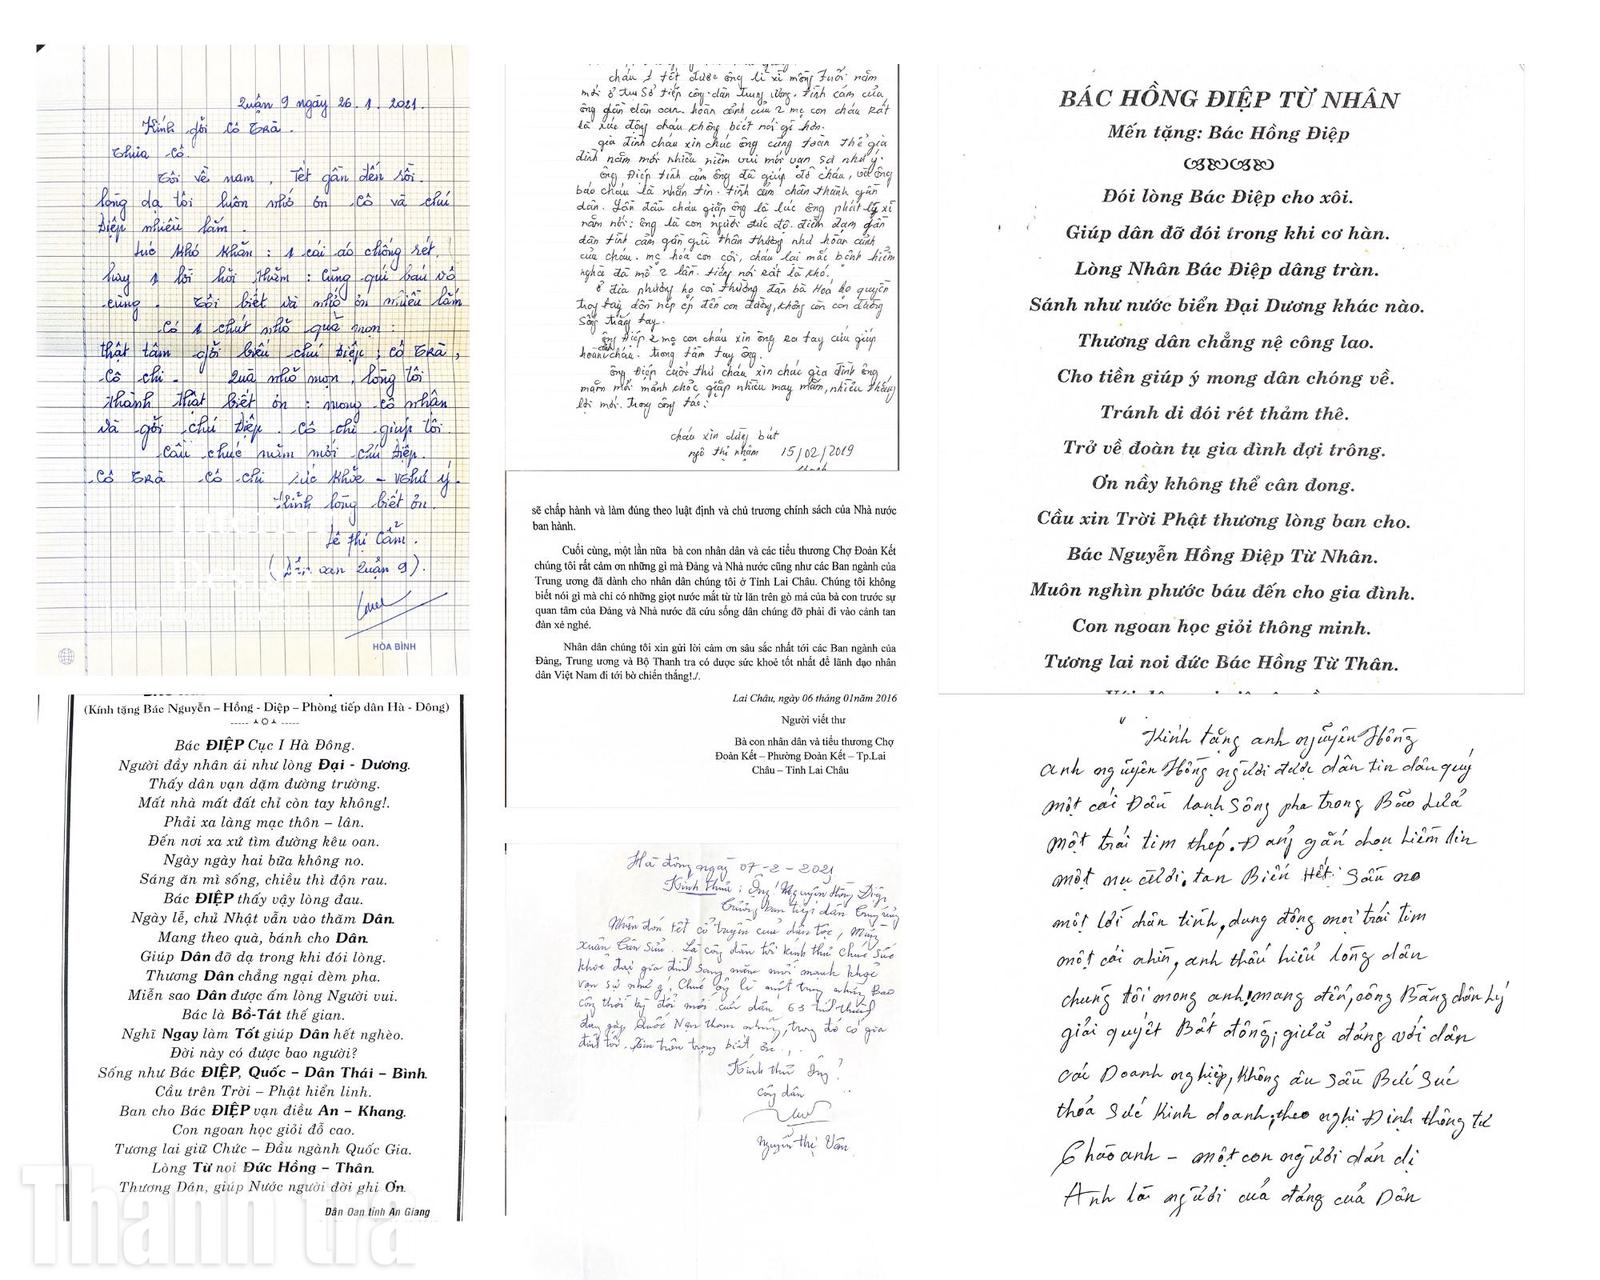 Quận 9 ngày 26.1.2021.
Kính gởi Cô Trà.
Thưa Cô.
Tôi về nam, Tết gần đến rồi.
lòng dạ tôi luôn nhớ ơn Cô và chú
Điệp nhiều lắm.
Lúc khó khăn: 1 cái áo chống rét,
hay 1 lời hỏi thăm: Cũng quí báu vô
cùng. Tôi biết và nhớ ơn nhiều lắm
Có 1 chút nhỏ quà mọn:
thật tâm gởi biếu chú Điệp, Cô Trà,
Cô chi. Quà nhỏ mọn, lòng tôi
thành thật biết ơn: mong Cô nhận
và gởi chú Điệp. Cô chi giúp tôi.
Cầu chúc năm mới chú Điệp.
Cô Trà Cô chi sức khỏe – như ý.
Kính lòng biết ơn.
Lê Thị Cẩm.
(Dân oan Quận 9).
HÒA BÌNH
(Kính tặng Bác Nguyễn – Hồng - Diệp – Phòng tiếp dân Hà - Đông)
Bác ĐIỆP Cục I Hà Đông.
Người đầy nhân ái như lòng Đại - Dương.
Thấy dân vạn dặm đường trường.
Mất nhà mất đất chỉ còn tay không!.
Phải xa làng mạc thôn – lân.
Đến nơi xa xứ tìm đường kêu oan.
Ngày ngày hai bữa không no.
Sáng ăn mì sống, chiều thì độn rau.
Bác ĐIỆP thấy vậy lòng đau.
Ngày lễ, chủ Nhật vẫn vào thăm Dân.
Mang theo quà, bánh cho Dân.
Giúp Dân đỡ dạ trong khi đói lòng.
Thương Dân chẳng ngại dèm pha.
Miễn sao Dân được ấm lòng Người vui.
Bác là Bồ-Tát thế gian.
Nghĩ Ngay làm Tốt giúp Dân hết nghèo.
Đời này có được bao người?
Sống như Bác ĐIỆP, Quốc – Dân Thái – Bình.
Cầu trên Trời – Phật hiển linh.
Ban cho Bác ĐIỆP vạn điều An – Khang.
Con ngoan học giỏi đỗ cao.
Tương lai giữ Chức – Đầu ngành Quốc Gia.
Lòng Từ nọi Đức Hồng – Thân.
Thương Dân, giúp Nước người đời ghi Ơn.
Dân Oan tỉnh An Giang
cháu 1 tết được ông lì xì mồng tuổi năm
mới ở trụ sở tiếp công dân trung ương. tình cảm của
ông gần dân oan. hoàn cảnh của 2 mẹ con cháu rất
là xúc động cháu không biết nói gì hơn.
gia đình cháu xin chúc ông cùng toàn thể gia
đình năm mới nhiều niềm vui mới vạn sơ như ý.
ông Điệp tình cảm ông đã giúp đỡ cháu,
báo cháu là nhắn tin. tình cảm chân thành gần
dân. Lần đầu cháu gặp ông là lúc ông phát lì xì
năm nói: ông là con người đức độ. điềm đạm gần
dân tình cảm gần gũi thân thương như hoàn cảnh
của cháu. mẹ hóa con côi, cháu lại mắc bệnh hiểm
nghèo đã mổ 2 lần. tiếng nói rất là khó.
ở địa phương họ coi thường đàn bà Hoá họ quyền
trong tay dồn nép ép đến con đường, không còn con đường
sống trắng tay.
ông Điệp 2 mẹ con cháu xin ông ra tay cứu giúp
hoàn cảnh cháu. trong tầm tay ông.
ông Điệp cuối thư cháu xin chúc gia đình ông
mạnh khỏe gặp nhiều may mắn, nhiều thắng
lợi mới. Trong công tác:
cháu xin dừng bút
ngô thị nhậm 15/02/2019
sẽ chấp hành và làm đúng theo luật định và chủ trương chính sách của Nhà nước
ban hành.
Cuối cùng, một lần nữa bà con nhân dân và các tiểu thương Chợ Đoàn Kết
chúng tôi rất cảm ơn những gì mà Đảng và Nhà nước cũng như các Ban ngành của
Trung ương đã dành cho nhân dân chúng tôi ở Tỉnh Lai Châu. Chúng tôi không
biết nói gì mà chỉ có những giọt nước mắt từ từ lăn trên gò má của bà con trước sự
quan tâm của Đảng và Nhà nước đã cứu sống dân chúng đỡ phải đi vào cảnh tan
đàn xẻ nghé.
Nhân dân chúng tôi xin gửi lời cảm ơn sâu sắc nhất tới các Ban ngành của
Đảng, Trung ương và Bộ Thanh tra có được sức khoẻ tốt nhất để lãnh đạo nhân
dân Việt Nam đi tới bờ chiến thắng!./.
Lai Châu, ngày 06 tháng 01năm 2016
Người viết thư
Bà con nhân dân và tiểu thương Chợ
Đoàn Kết – Phường Đoàn Kết – Tp.Lai
Châu – Tỉnh Lai Châu
Hà đông ngày 07-2-2021
Kính thưa: Ông Nguyễn Hồng Điệp
Trưởng ban tiếp dân trung ương
Nhân đón tết cổ truyền của dân tộc, Mừng
xuân Tân Sửu. Là công dân tôi kính thư chúc sức
khỏe đại gia đình sang năm mới mạnh khỏe
vạn sự như ý, Chúc ông là một trong những bao
công thời kỳ đổi mới cứu dân 63 tỉnh thành
Quốc Nạn tham nhũng, trong đó có gia
đình tôi. Xin trân trọng biết ơn...
Kính thư Ông!
công dân
Nguyễn thị Vân
BÁC HỒNG ĐIỆP TỪ NHÂN
Mến tặng: Bác Hồng Điệp
Đói lòng Bác Điệp cho xôi.
Giúp dân đỡ đói trong khi cơ hàn.
Lòng Nhân Bác Điệp dâng tràn.
Sánh như nước biển Đại Dương khác nào.
Thương dân chẳng nệ công lao.
Cho tiền giúp ý mong dân chóng về.
Tránh di đói rét thảm thê.
Trở về đoàn tụ gia đình đợi trông.
Ơn nầy không thể cân đong.
Cầu xin Trời Phật thương lòng ban cho.
Bác Nguyễn Hồng Điệp Từ Nhân.
Muôn nghìn phước báu đến cho gia đình.
Con ngoan học giỏi thông minh.
Tương lai noi đức Bác Hồng Từ Thân.
Kính tặng anh nguyễn Hồng
anh nguyễn Hồng người được dân tin dân quý
một cái Đầu lạnh sông pha trong Bão Lửa
một trái tim thép. Đang gắn chọn Liêm
một nụ cười, tan Biến Hết Sầu no
một lời chân tình, dung động mọi trái tim
một cái nhìn, anh thấu hiểu lòng dân
chúng tôi mong anh, mang đến, công Bằng chân Lý
giải quyết Bất đồng, giữa đảng với dân
các Doanh nghiệp, không âu sầu Bức Súc
thỏa sức kinh doanh, theo nghị Định thông tư
Chào anh – một con người dản dị
Anh là người của đảng của Dân
Thanh tra